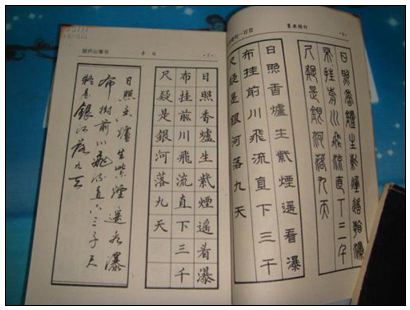 望庐山瀑布
李白
日照香爐生紫煙遙看瀑
布挂前川飛流直下三千
尺疑是銀河落九天
日照香爐生紫煙遙看瀑
布挂前川飛流直下三千
尺疑是銀河落九天
日照香爐生紫煙遙看瀑
布挂前川飛流直下三千
尺疑是銀河落九天
日照香爐生紫煙遙看瀑
布掛前川飛流直下三千尺
疑是銀河落九天